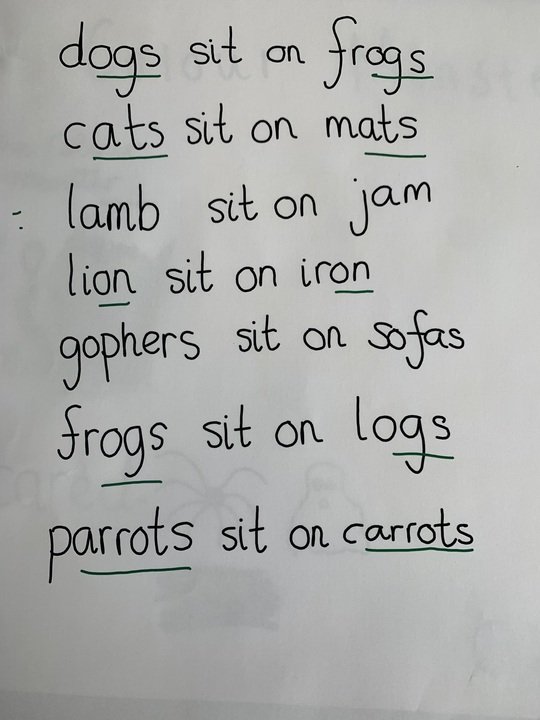 dogs sit on frogs
cats sit on mats
lamb sit on jam
lion sit on iron
gophers sit on sofas
frogs sit on logs
parrots sit on carrots